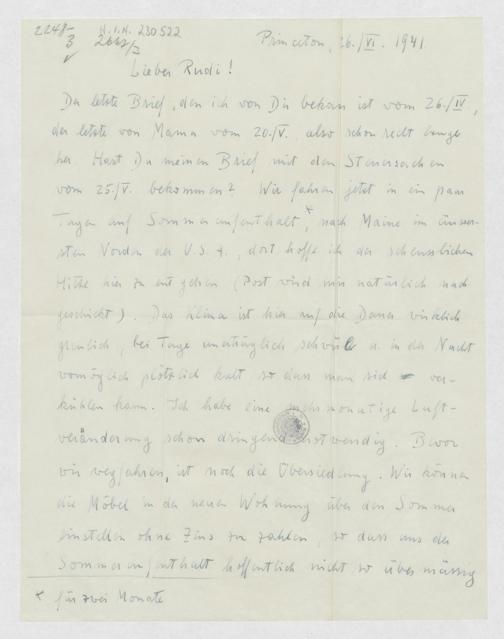 2248–
3
H.I.N. 230522
Princeton, 26./VI. 1941.
Lieber Rudi!
Der letzte Brief, den ich von Dir bekam ist vom 26./IV,
der letzte von Mama vom 20./V. also schon recht lange
her. Hast Du meinen Brief mit den Steuersachen
vom 25./V. bekommen? Wir fahren jetzt in ein paar
Tagen auf Sommeraufenthalt*, nach Maine im äusser-
sten Norden der U.S.A., dort hoffe ich der scheusslichen
Hitze hier zu entgehen (Post wird mir natürlich nach
geschickt). Das Klima ist hier auf die Dauer wirklich
greulich, bei Tage unerträglich schwül u. in der Nacht
womöglich plötzlich kalt so dass man sich ver-
kühlen kann. Ich habe eine mehrmonatige Luft-
veränderung schon dringend notwendig. Bevor
wir wegfahren, ist noch die Übersiedlung. Wir können
die Möbel in der neuen Wohnung über den Sommer
einstellen ohne Zins zu zahlen, so dass uns der
Sommeraufenthalt hoffentlich nicht so übermässig
* für zwei Monate